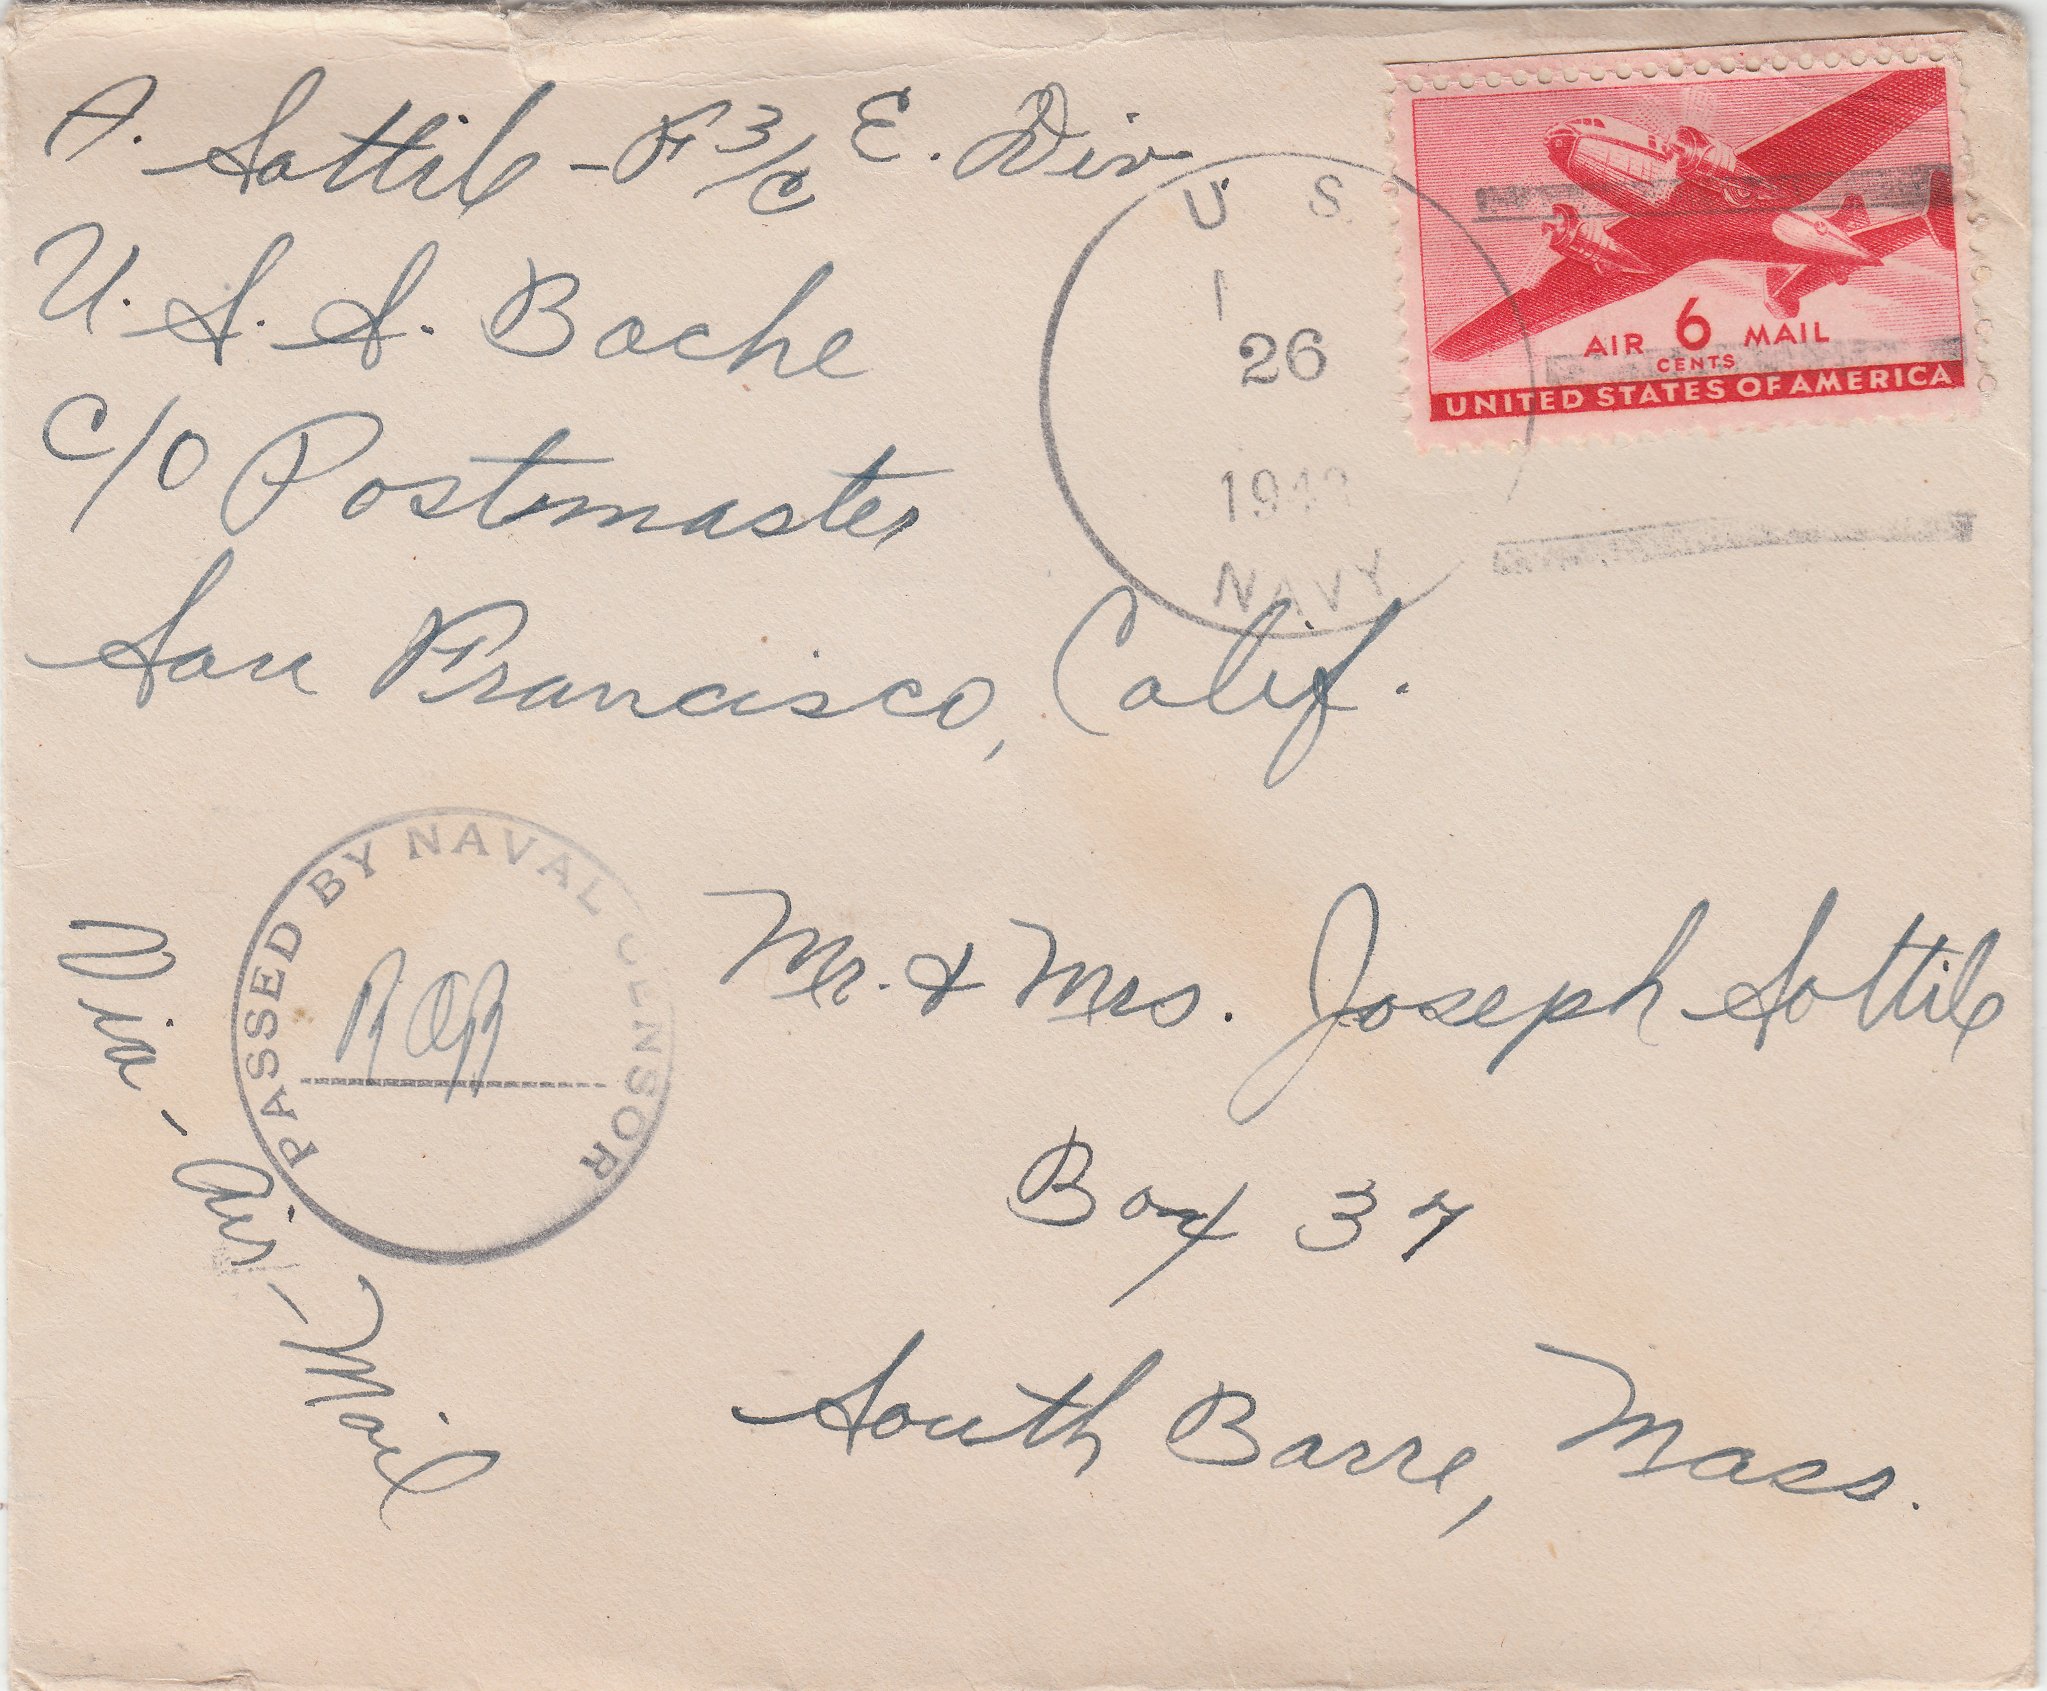 A. Sottile - F 3/c E. Div.
U.S.S. Bache
c/o Postmaster
San Francisco, Calif.
U S
26
NAVY
AIR 6 MAIL
CENTS
UNITED STATES OF AMERICA
PASSED BY NAVAL CENSOR
Via - Air - Mail
Mr. & Mrs. Joseph Sottile
Box 37
South Barre, Mass.